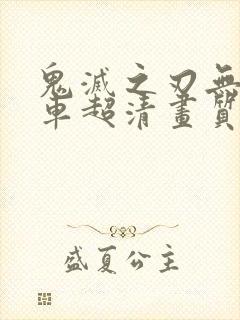 鬼滅之刃無
車超清畫質
盛夏公主